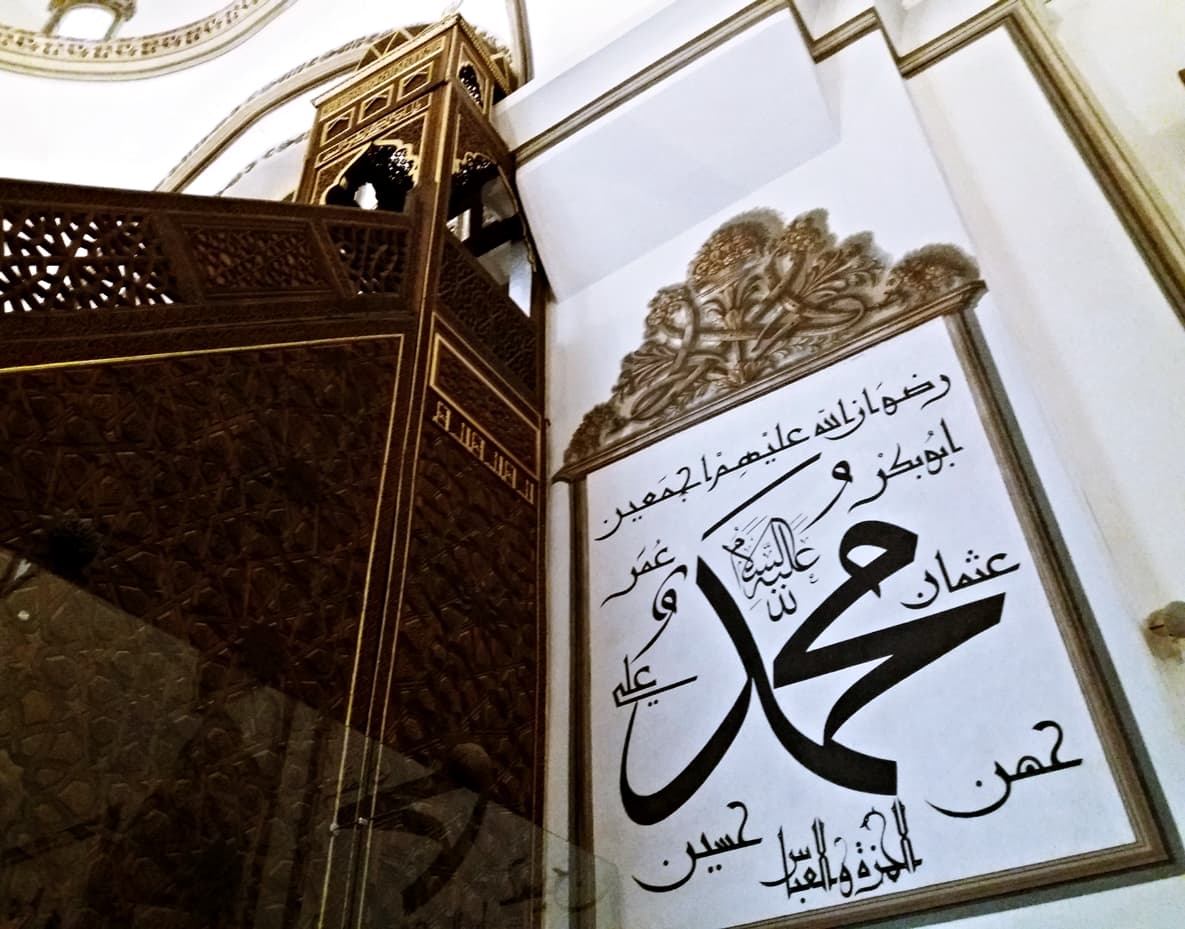 رضوان الله عليهم اجمعين
ابوبكر
و
عمر
عليه السلام
محمد
عثمان
و
علي
حهن
حسين
الحمزة و العباس